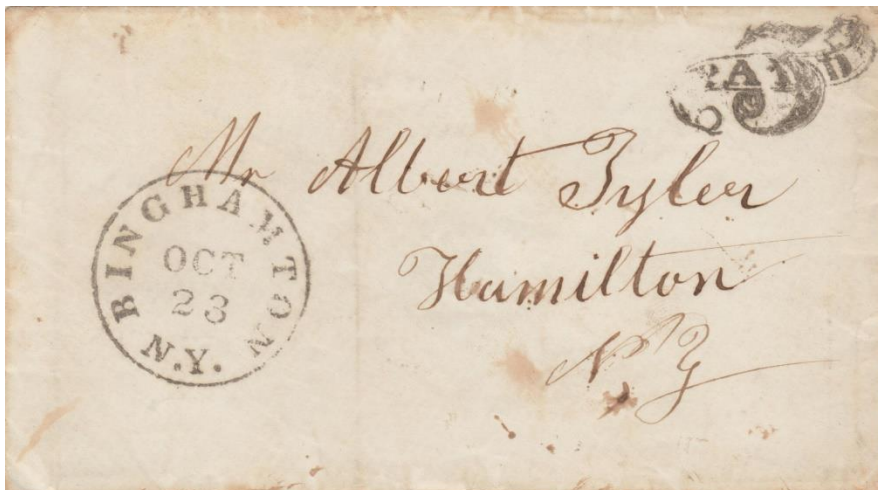 PAID
3
Mr Albert Tyler
Hamilton
N Y
BINGHAMTON
OCT
23
N.Y.